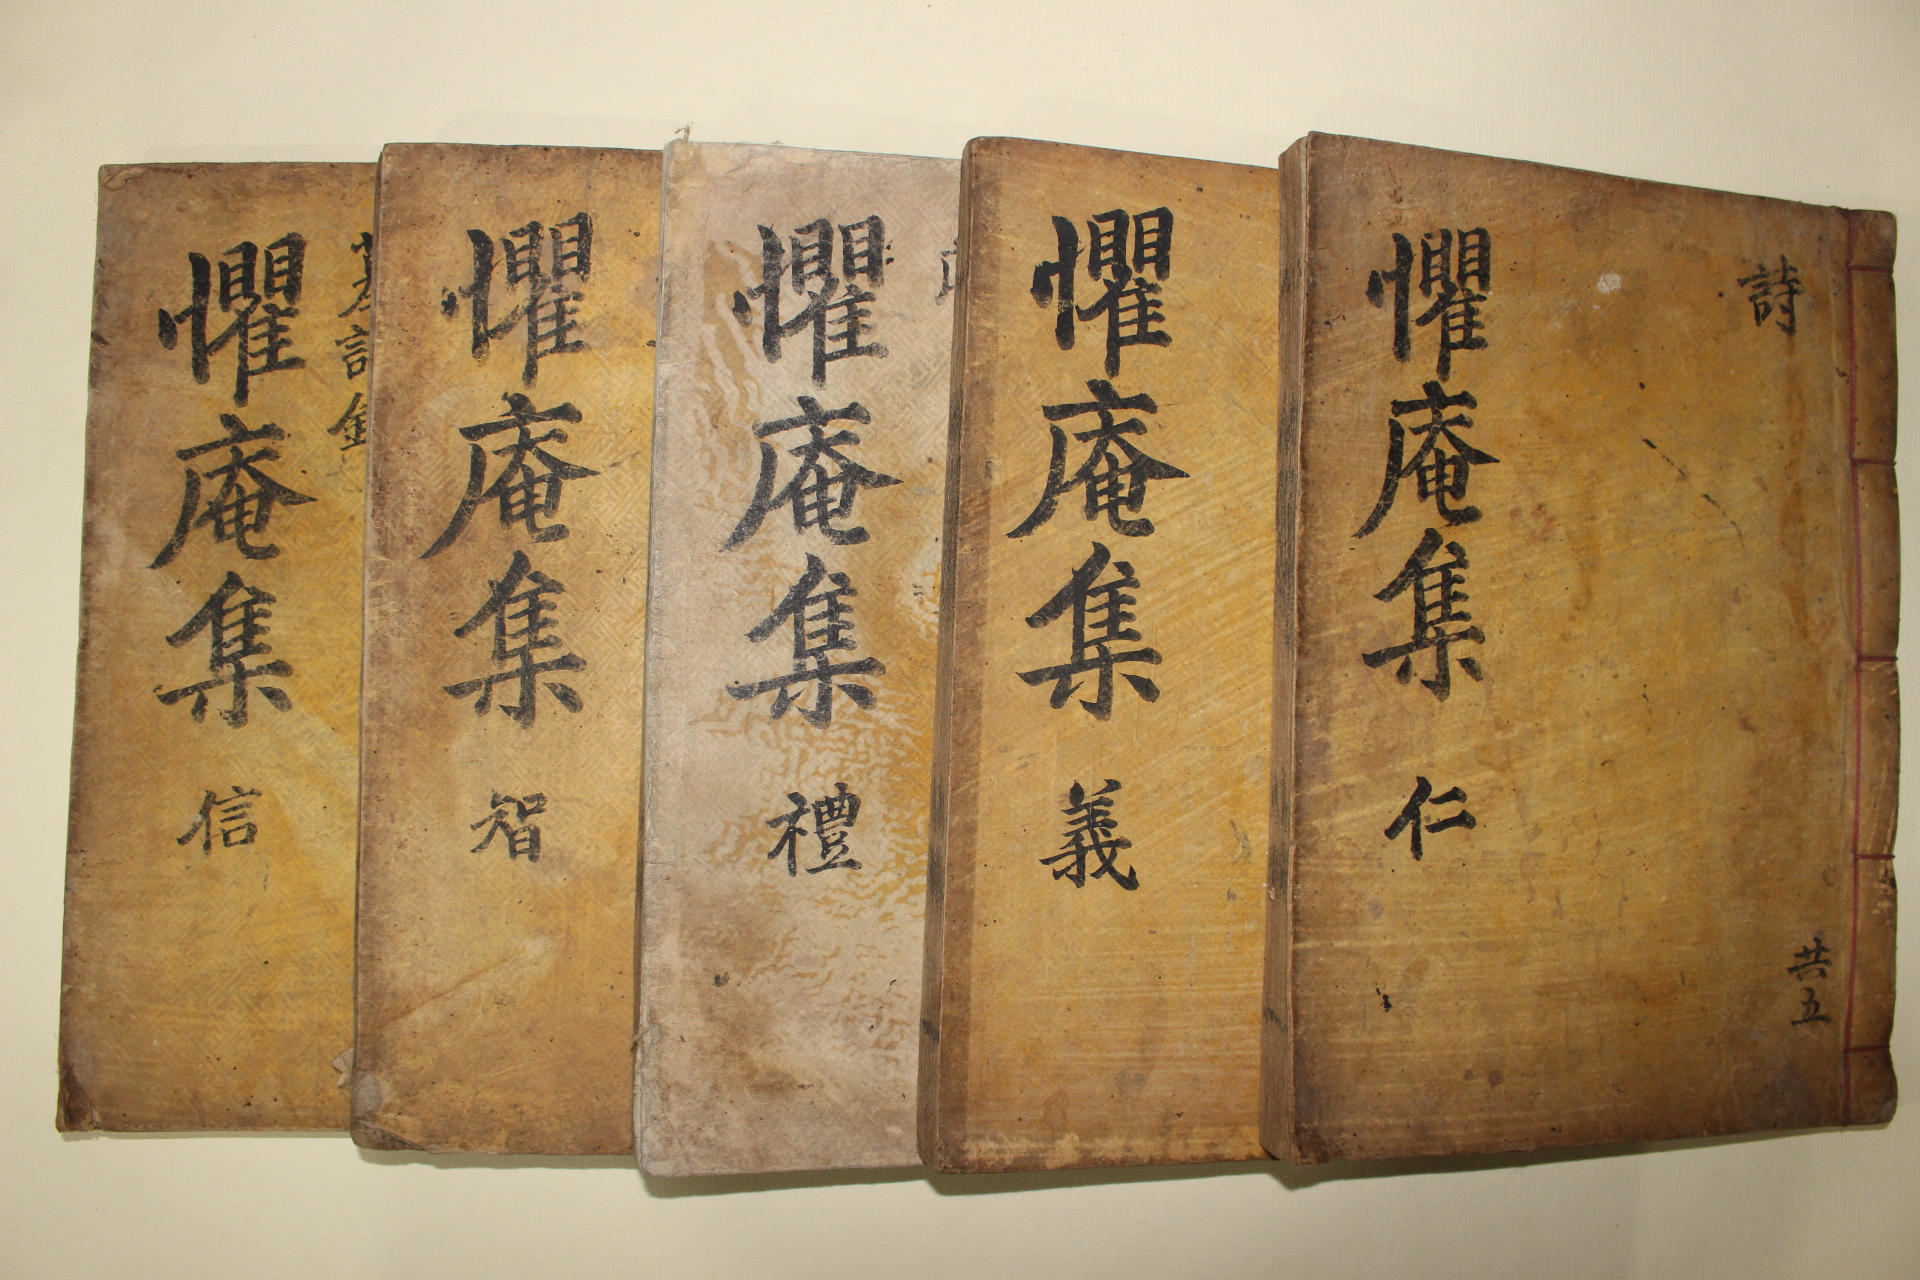 詩
懼庵集
仁
共五
懼庵集
義
懼庵集
禮
懼庵集
智
懼庵集
信